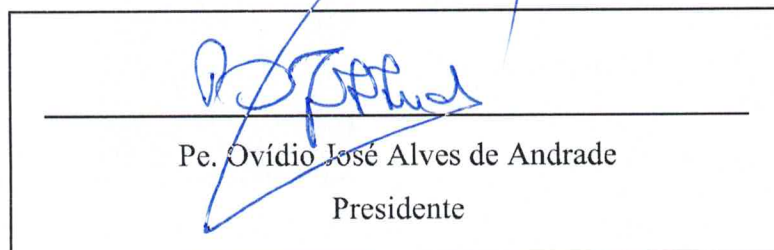 Pe. Ovídio José Alves de Andrade
Presidente